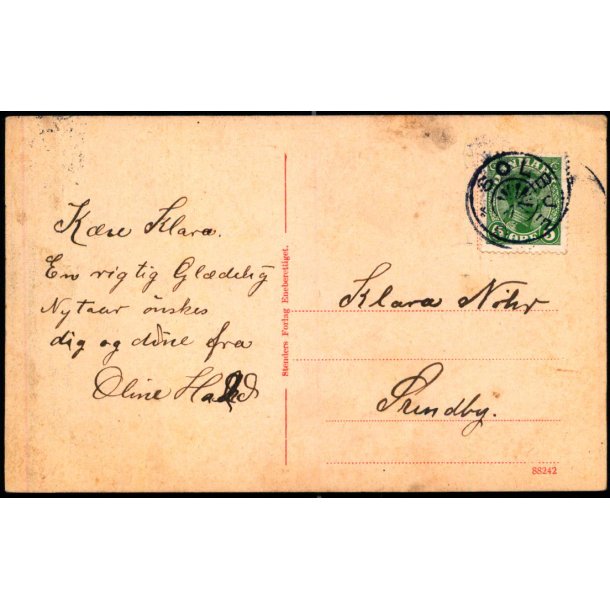 Kære Klara.
En rigtig Glædelig
Nytaar ønskes
dig og dine fra
Oline
Stenders Forlag Eneberettiget.
DANMARK
5 ØRE 5
SOLBJERG
Klara Nöhr
Sundby.
88242